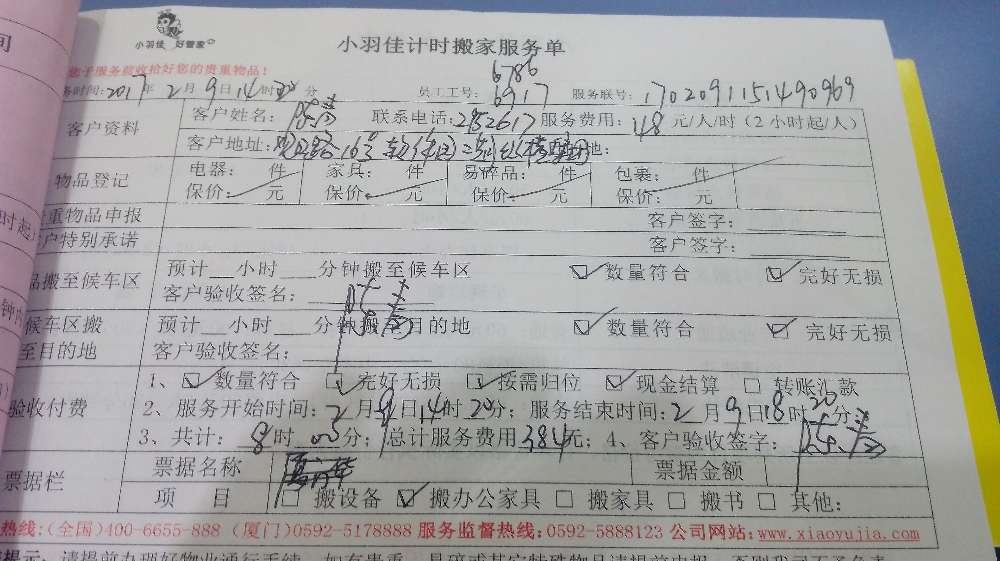 小羽佳 好管家
小羽佳计时搬家服务单
您于服务前收拾好您的贵重物品!
6786
务时间:2017年2月9日14时20分 员工工号:6917 服务联号:17020911514909​69
客户资料
客户姓名: 联系电话:2952617 服务费用:48元/人/时(2小时起/人)
客户地址: 16号
物品登记
电器: 件 家具: 件 易碎品: 件 包裹: 件
保价: 元 保价: 元 保价: 元 保价: 元
重物品申报 客户签字:
户特别承诺 客户签字:
品搬至候车区
预计 小时 分钟搬至候车区 数量符合 完好无损
客户验收签名:
候车区搬至目的地
预计 小时 分钟搬至目的地 数量符合 完好无损
客户验收签名:
验收付费
1、数量符合 完好无损 按需归位 现金结算 转账汇款
2、服务开始时间:2月9日14时20分;服务结束时间:2月9日18时20分;
3、共计:8时00分;总计服务费用384元;4、客户验收签字:
票据栏
票据名称 票据金额
项 目 搬设备 搬办公家具 搬家具 搬书 其他:
热线:(全国)400-6655-888 (厦门)0592-5178888 服务监督热线:0592-5888123 公司网站:www.xiaoyujia.com
提示:请提前办理好物业通行手续